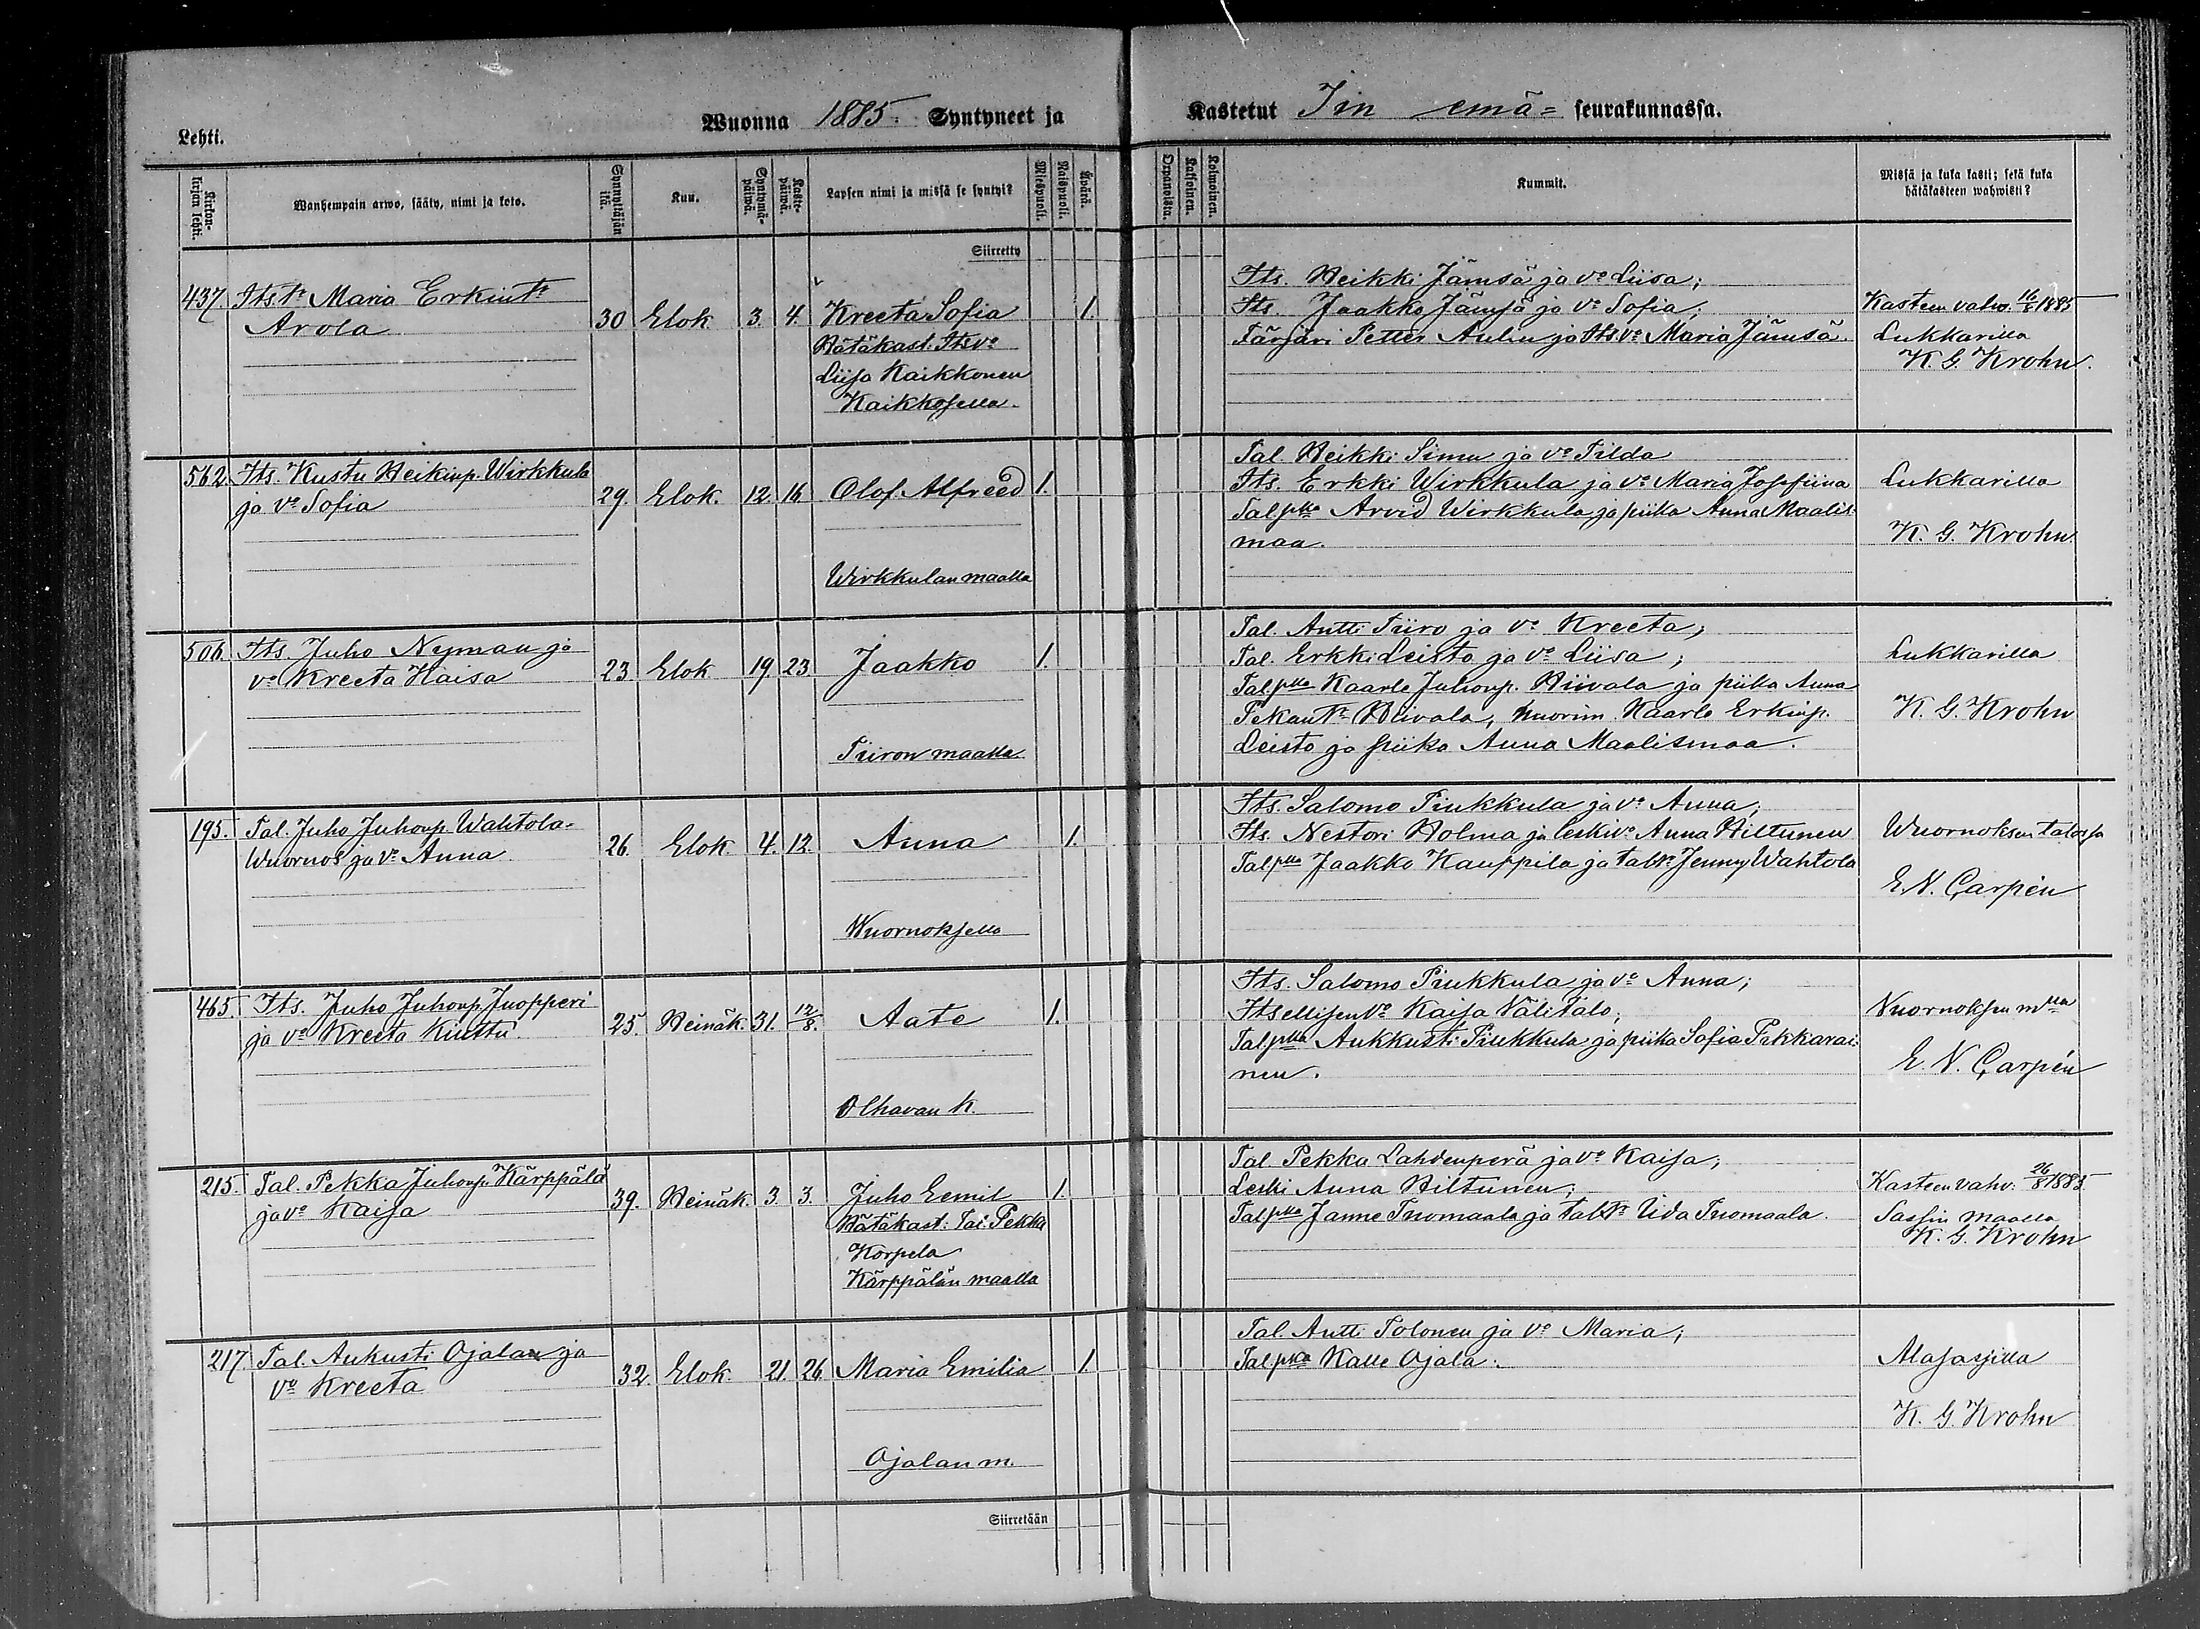 Wuonna 1885. Syntyneet ja
Kastetut Iin emä= seurakunnassa.
Lehti.
Kirkon-
kirjan lehti.
Wanhempain arwo, sääty, nimi ja koto.
Synnyttäjän
ikä.
Kuu.
Syntymä-
päiwä.
Kaste-
päiwä.
Lapsen nimi ja missä se syntyi?
Miespuoli.
Naispuoli.
Äpärä.
Orpanoista.
Kaksoinen.
Kolmoinen.
Kummit.
Missä ja kuka kasti; sekä kuka
hätäkasteen wahwisti?
Siirretty
437. Itst. Maria Erkint.
Arola
30 Elok 3. 4. Kreeta Sofia 1.
Hätäkast. Itsvo
Liisa Kaikkonen
Kaikkosella.
Its. Heikki Jämsä ja vo Liisa;
Its. Jaakko Jämsä ja vo Sofia;
Färjäri Petter Aulin ja Itsvo Maria Jämsä.
Kasteen vahv. 16/8 1885
Lukkarilla
K. G. Krohn.
562. Its. Kustu Heikinp. Wirkkula
ja vo Sofia
29. Elok. 12. 16 Olof Alfreed 1.
Wirkkulan maalla
Tal. Heikki Simu ja vo Tilda
Its. Erkki Wirkkula ja vo Maria Josefiina
Talpka Arvid Wirkkula ja piika Anna Maalis-
maa.
Lukkarilla
K. G. Krohn
506. Its. Juho Nyman ja
vo Kreeta Haisa
23. Elok 19. 23 Jaakko 1.
Tiiron maalla
Tal. Antti Tiiro ja vo Kreeta;
Tal. Erkki Leisto ja vo Liisa;
Talpka Kaarle Juhonp. Hiivala ja piika Anna
Pekant. Hiivala, nuorim. Kaarle Erkinp.
Leisto ja piika Anna Maalismaa.
Lukkarilla
K. G. Krohn
195. Tal. Juho Juhonp. Wahtola-
Wuornos ja vo Anna
26. Elok. 4. 12. Anna 1.
Wuornoksella
Its. Salomo Piukkula ja vo Anna;
Its. Nestori Holma ja leskivo Anna Hiltunen
Talpka Jaakko Kauppila ja talt. Jenny Wahtola
Wuornoksen talossa
E. N. Carpén
465. Its. Juho Juhonp. Juopperi
ja vo Kreeta Kinttu.
25. Heinäk. 31. 12/8. Aate 1.
Olhavan k.
Its. Salomo Piukkula ja vo Anna;
Itsellisen vo Kaisa Välitalo;
Talpka Aukkusti Piukkula ja piika Sofia Pekkarai-
nen.
Wuornoksen mlla
E. N. Carpén
215. Tal. Pekka Juhonp. Kärppälä
ja vo Kaisa
39. Heinäk. 3. 3. Juho Eemil 1.
Hätäkast: Tal. Pekka
Korpela
Kärppälän maalla
Tal. Pekka Lahdenperä ja vo Kaisa;
Leski Anna Hiltunen;
Talpka Janne Tuomaala ja talt. Iida Tuomaala.
Kasteen vahv. 26/8 1885
Sassin maalla
K. G. Krohn
217. Tal. Aukusti Ojalan ja
vo Kreeta
32. Elok. 21. 26. Maria Emilia 1.
Ojalan m.
Tal. Antti Tolonen ja vo Maria;
Talpka Kalle Ojala.
Alasassilla
K. G. Krohn
Siirretään